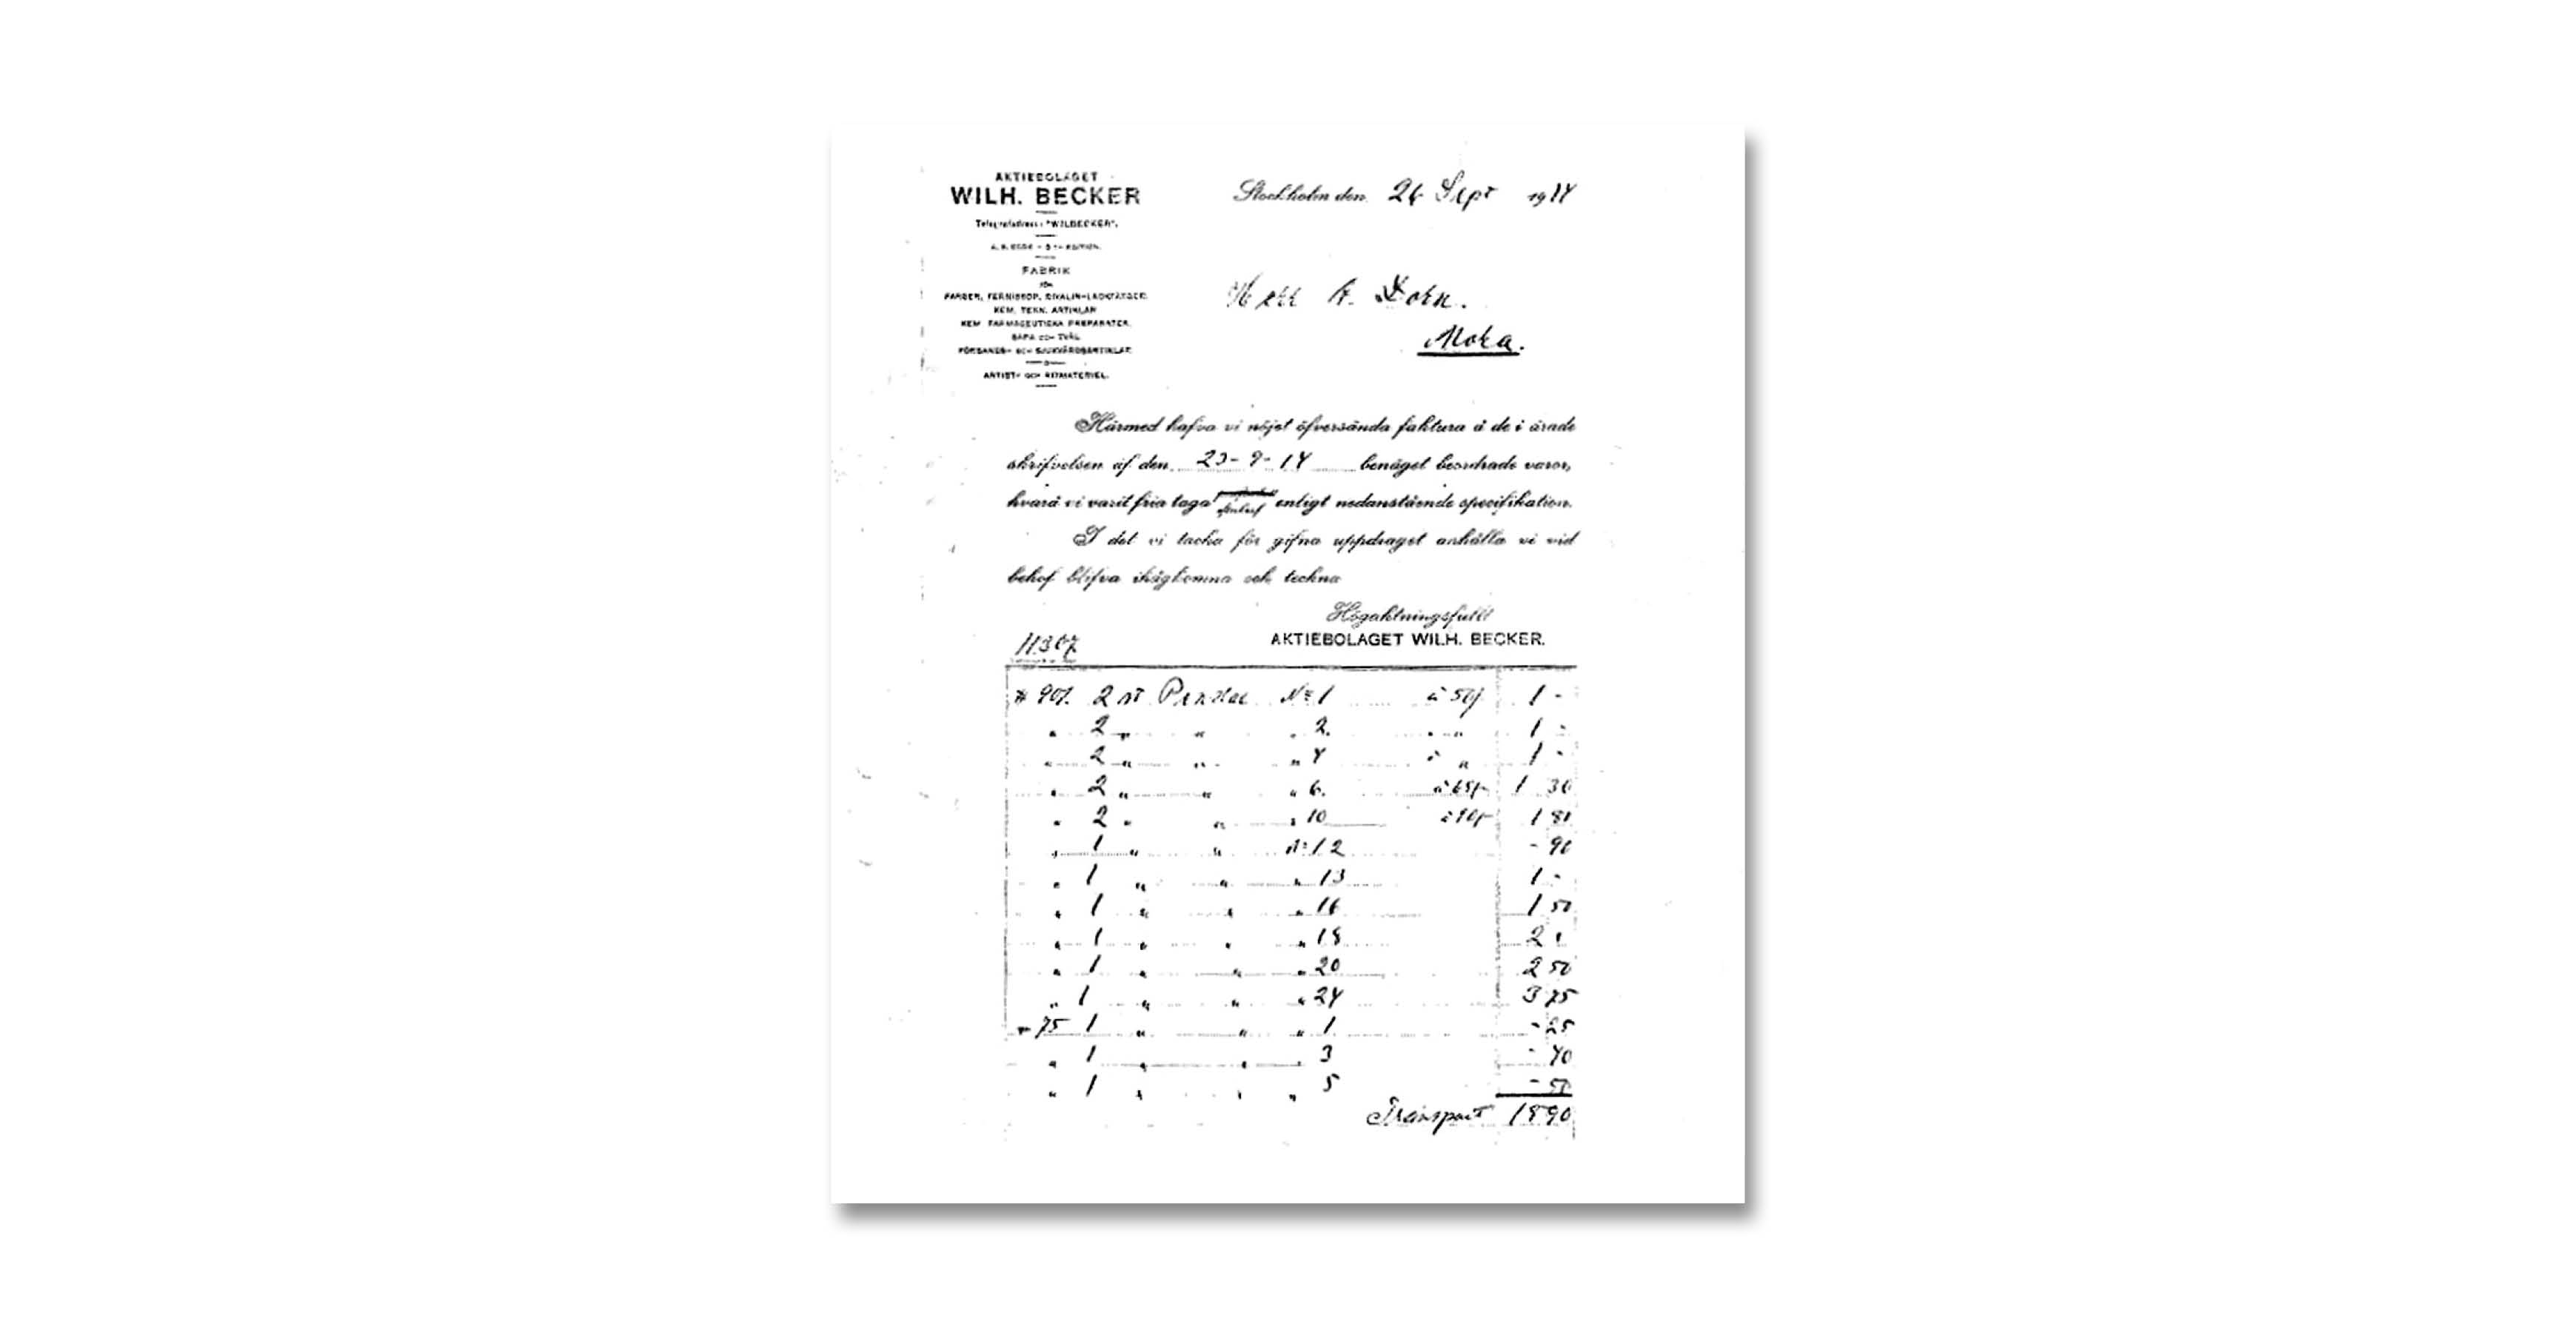 AKTIEBOLAGET
WILH. BECKER
Telegrafadress: "WILBECKER".
A. B. CODE - 5TH EDITION.
FABRIK
FÖR
FÄRGER, FERNISSOR, SIVALIN-LACKFÄRGER,
KEM. TEKN. ARTIKLAR
KEM. FARMACEUTISKA PREPARATER,
SÅPA OCH TVÅL
FÖRBANDS- OCH SJUKVÅRDSARTIKLAR.
ARTIST- OCH RITMATERIEL.
Stockholm den 26 Sept 1914
Herr A. Zorn.
Mora.
Härmed hafva vi nöjet öfversända faktura å de i ärade
skrifvelsen af den 23-9-14 benäget beordrade varor,
hvarå vi varit fria taga enligt nedanstående specifikation.
I det vi tacka för gifna uppdraget anhålla vi vid
behof blifva ihågkomna och teckna
Högaktningsfullt
AKTIEBOLAGET WILH. BECKER.
11307
# 901. 2 st Penslar No 1 à 50f 1 -
" 2 " " " 2. " " 1 -
" 2 " " " 4 à " 1 -
" 2 " " " 6. à 65f 1 30
" 2 " " " 10 à 90f 1 80
" 1 " " No 12 - 90
" 1 " " " 13 1 -
" 1 " " " 16 1 50
" 1 " " " 18 2 -
" 1 " " " 20 2 50
" 1 " " " 24 3 75
" 75 1 " " " 1 - 25
" 1 " " " 3 - 40
" 1 " " " 5 - 50
Transport 18 90